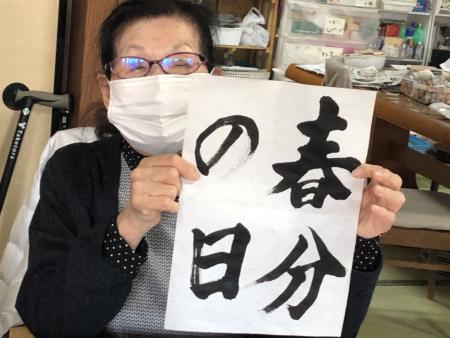 春分
の日